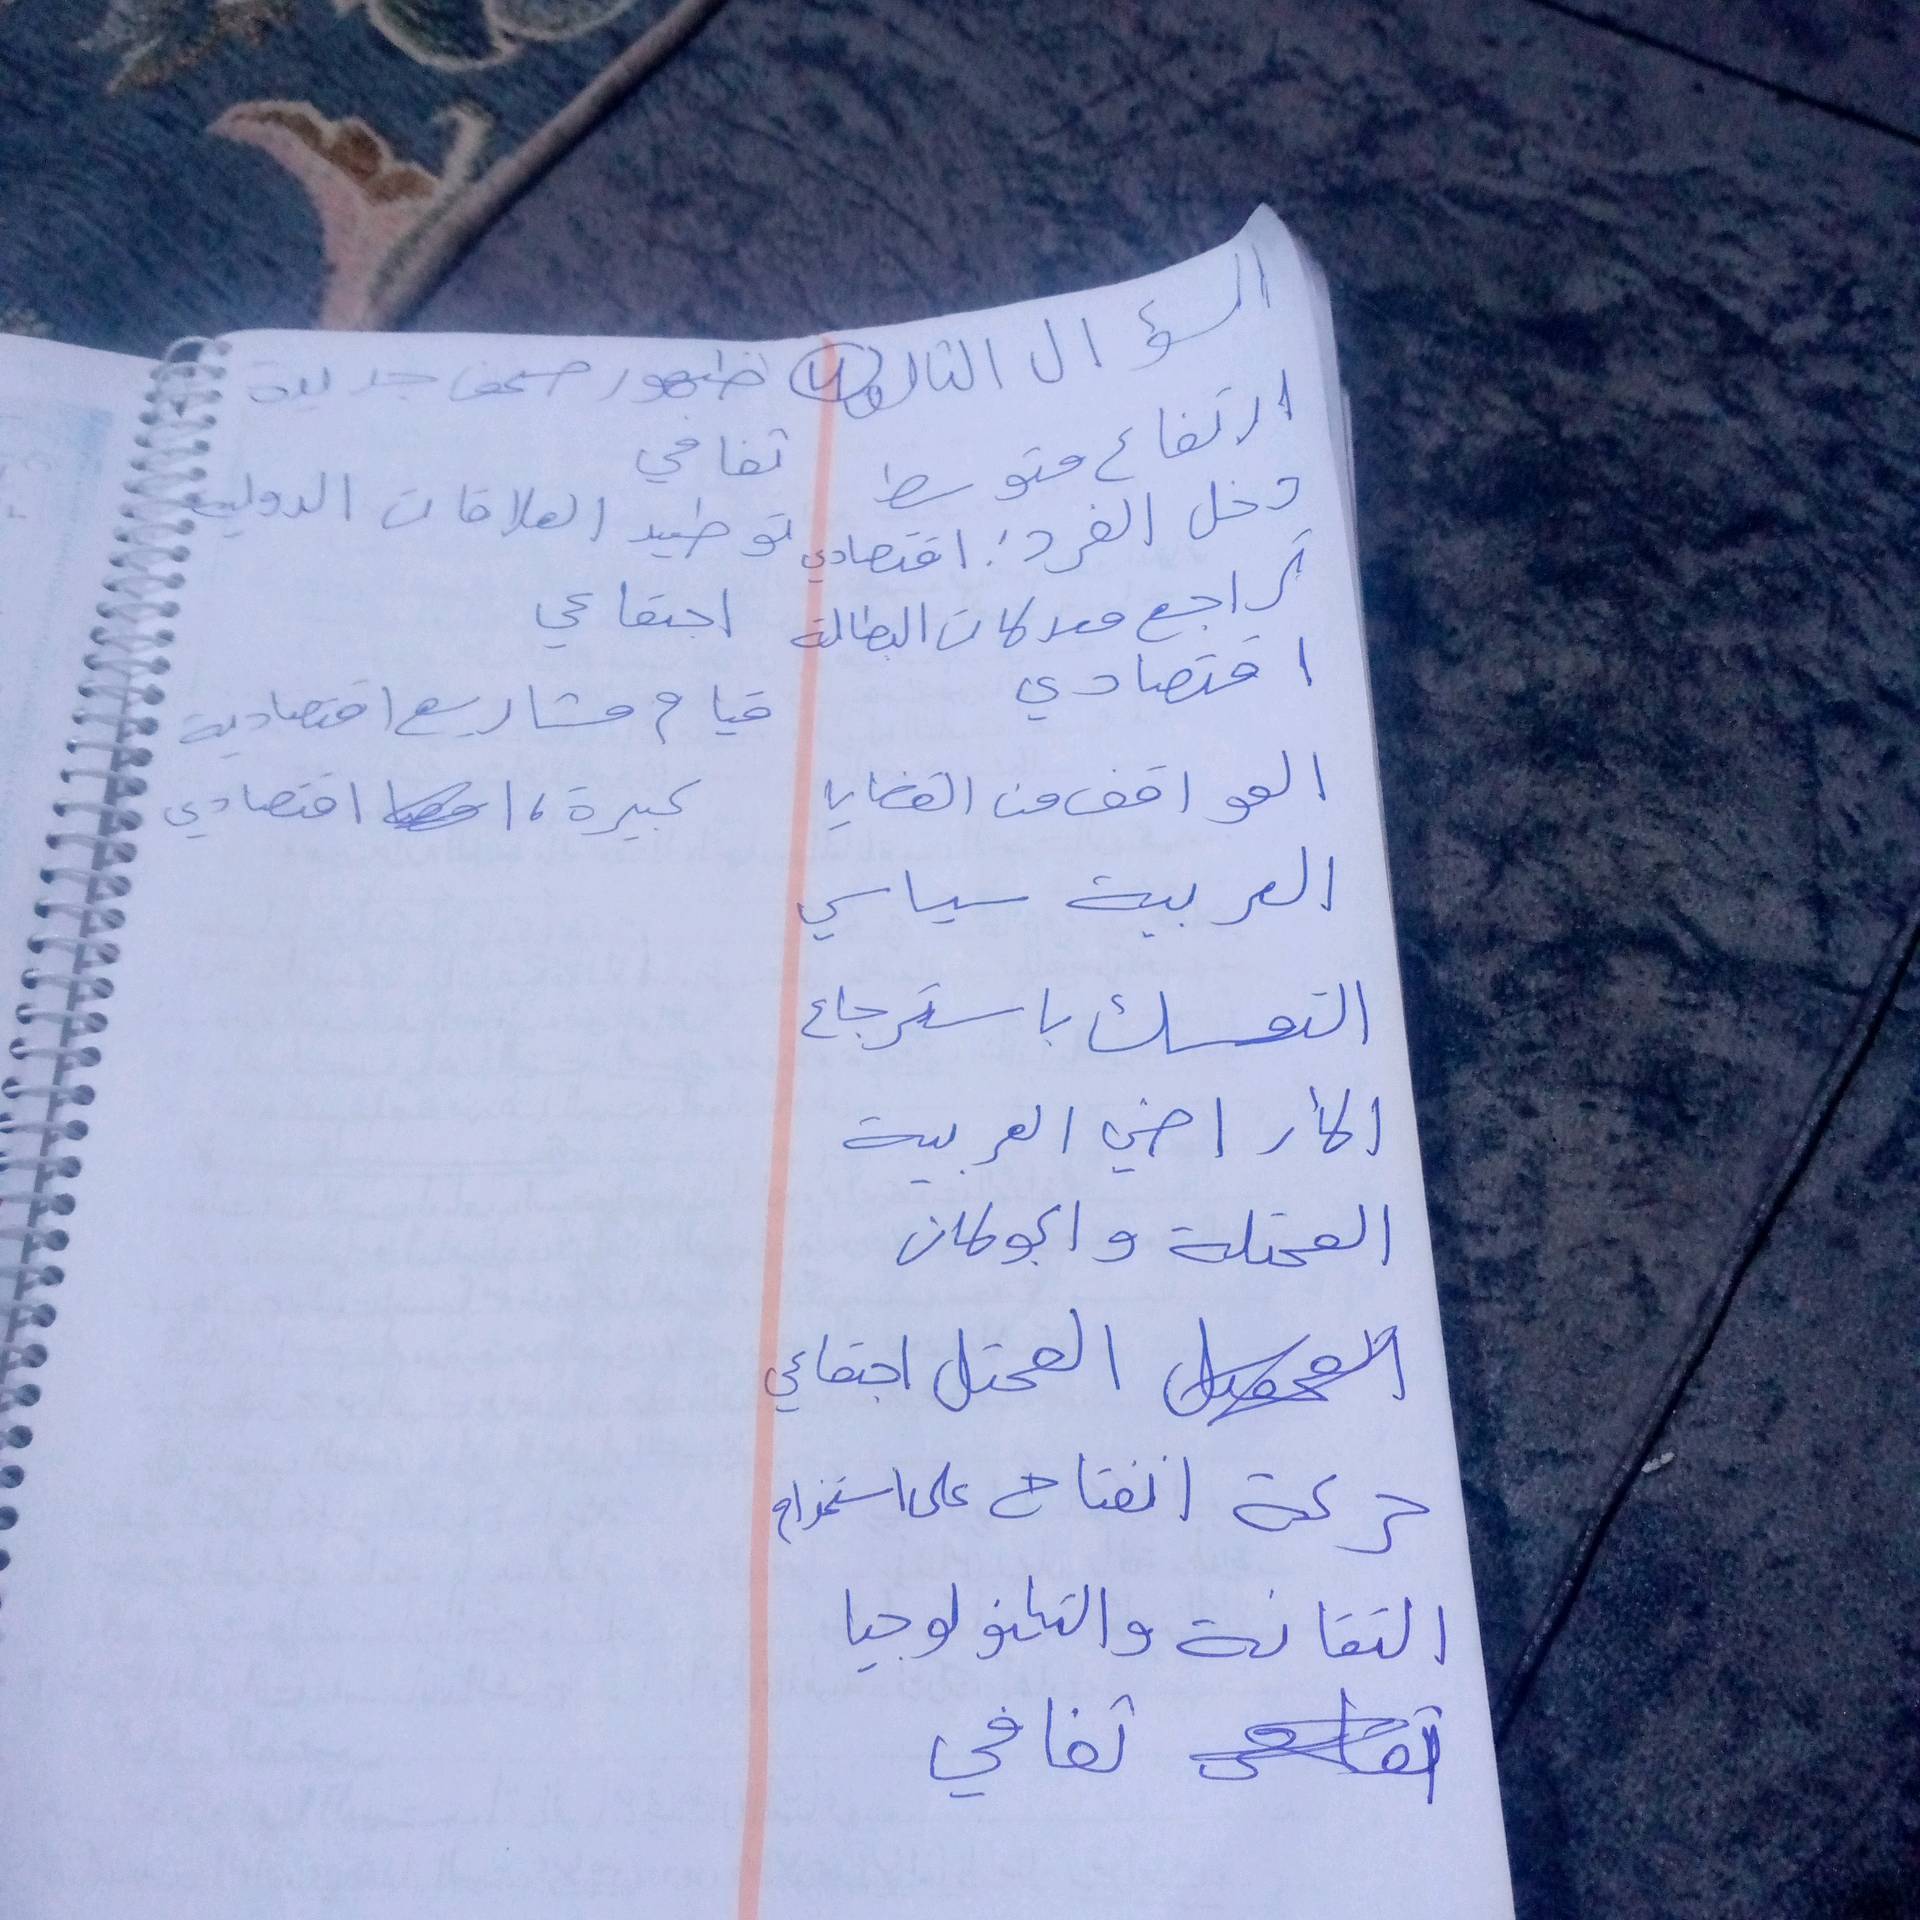 السؤال الثالث
ارتفاع متوسط
دخل الفرد: اقتصادي
تراجع معدلات البطالة
اقتصادي
المواقف من القضايا
العربية سياسي
التمسك باسترجاع
الأراضي العربية
المحتلة والجولان
المحتل اجتماعي
حركة انفتاح على استخدام
التقانة والتكنولوجيا
ثقافي
ظهور صحف جديدة
ثقافي
توطيد العلاقات الدولية
اجتماعي
قيام مشاريع اقتصادية
كبيرة، اقتصادي